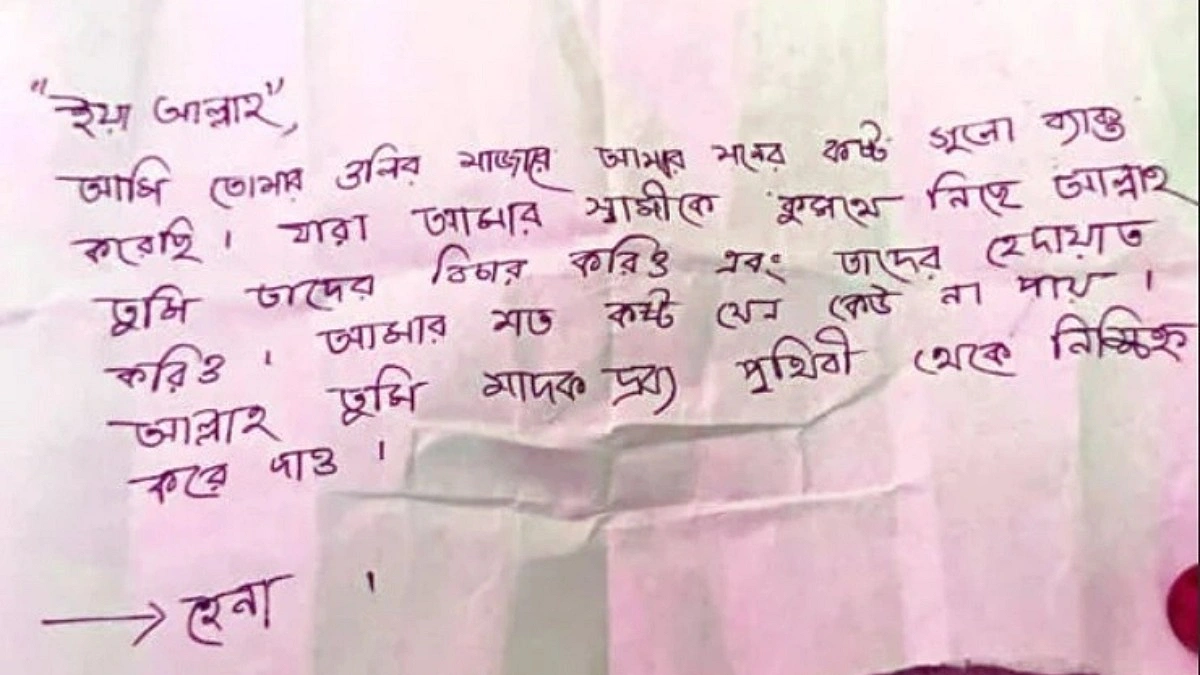 "ইয়া আল্লাহ",
আমি তোমার ওলির মাজারে আমার মনের কষ্ট গুলো ব্যাক্ত
করেছি। যারা আমার স্বামীকে কুপথে নিছে আল্লাহ
তুমি তাদের বিচার করিও এবং তাদের হেদায়াত
করিও। আমার মত কষ্ট যেন কেউ না পায়।
আল্লাহ তুমি মাদক দ্রব্য পৃথিবী থেকে নিশ্চিহ্ন
করে দাও।
→ হেনা ।